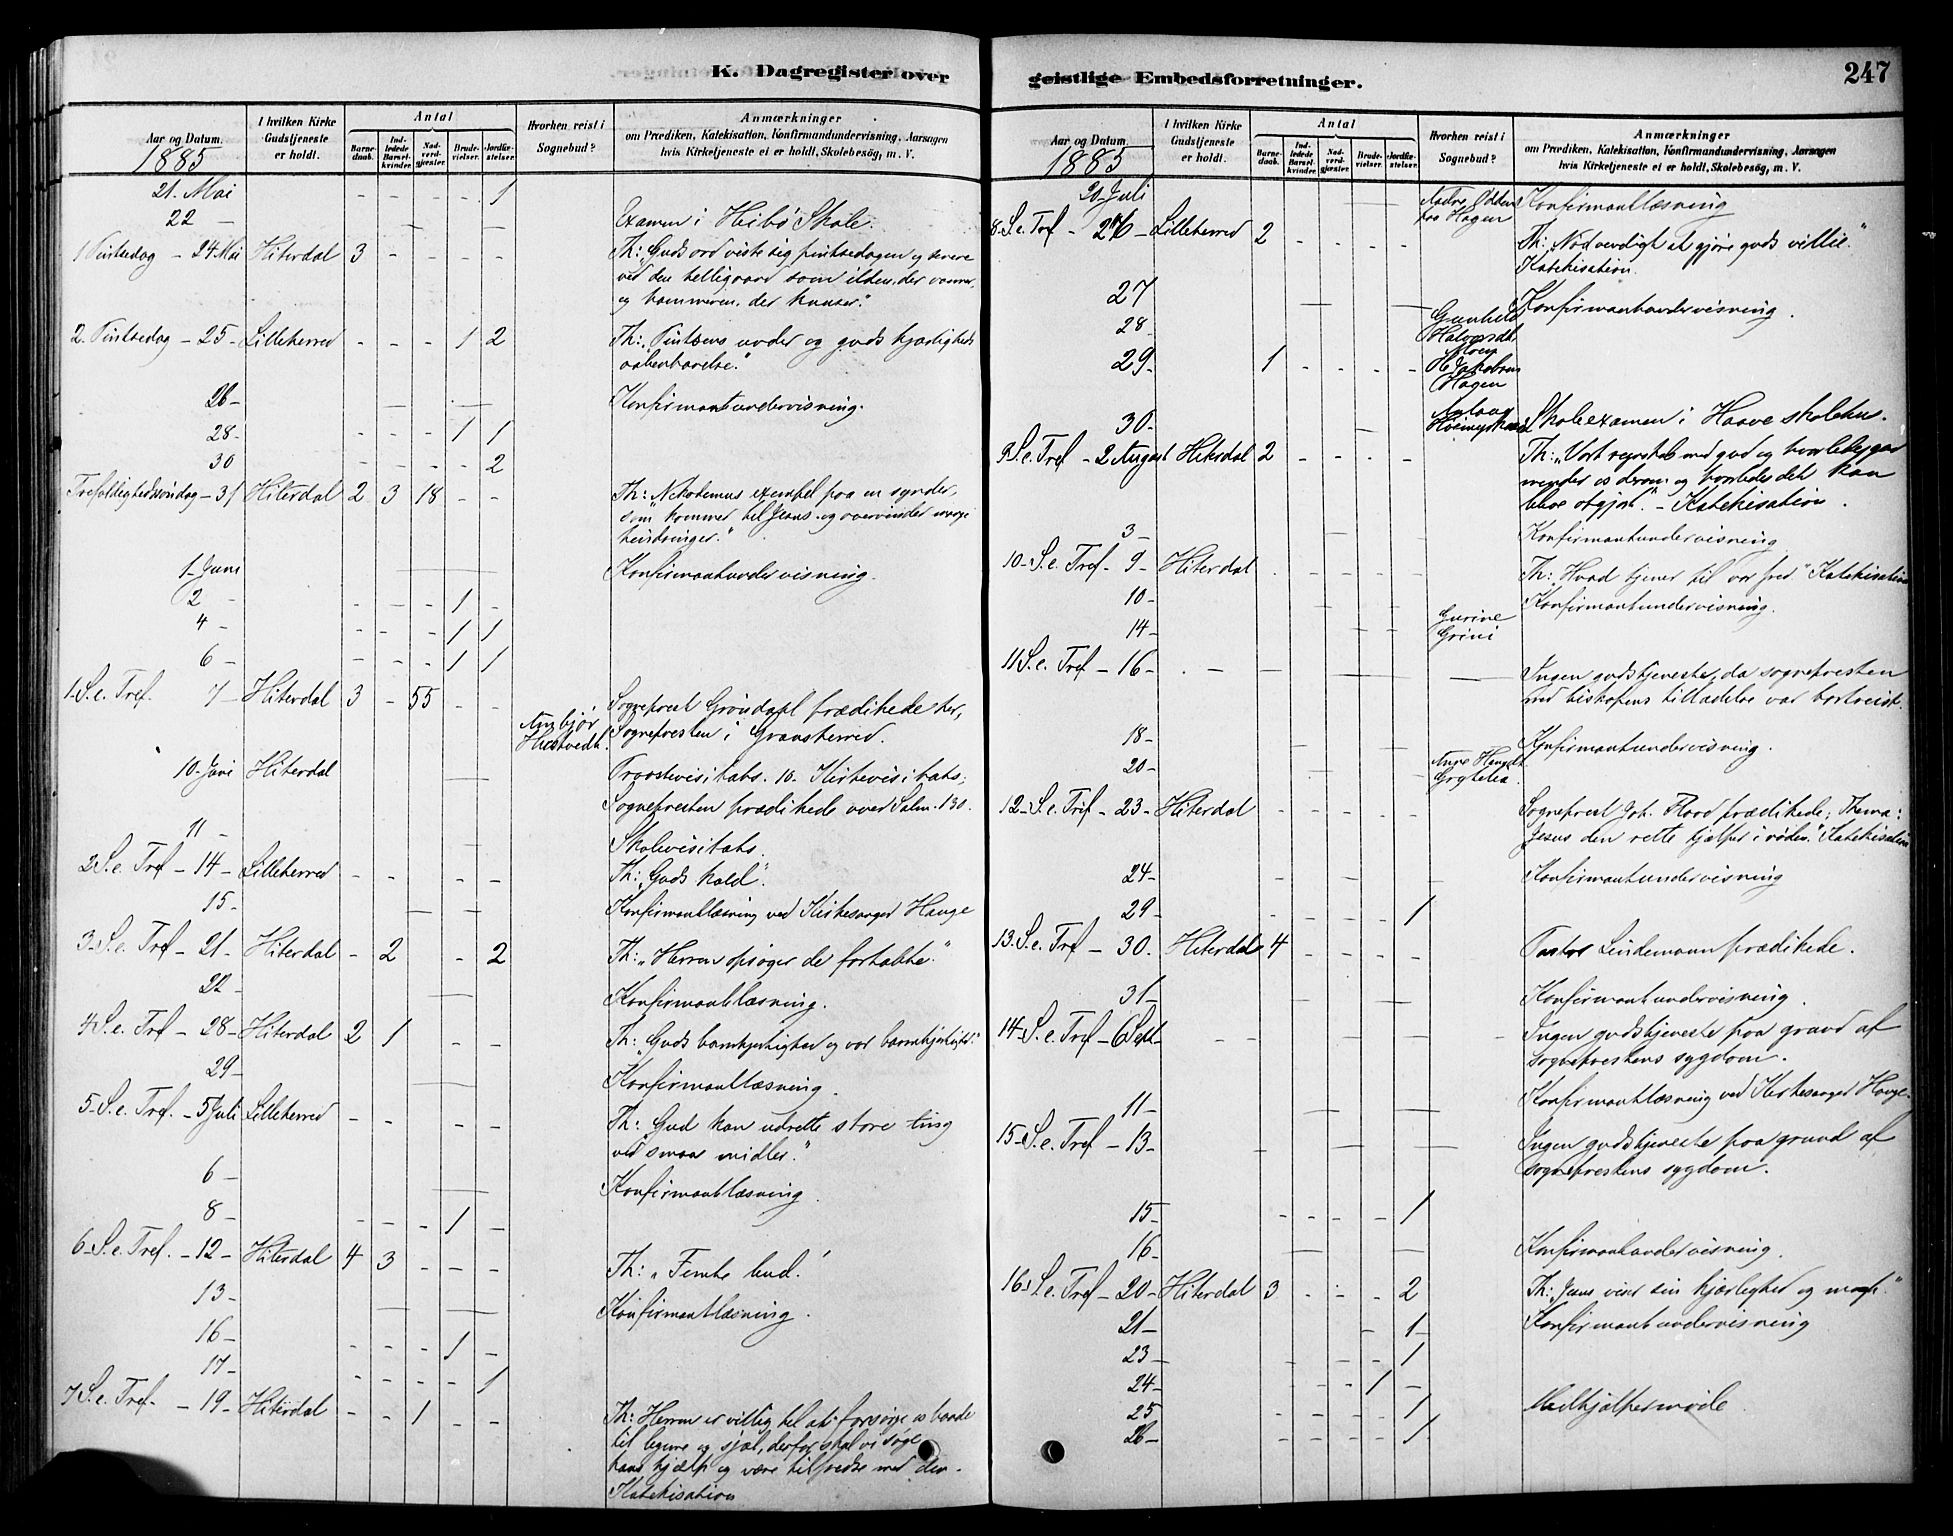 K. Dagregister over
Aar og Datum.
1885
I hvilken Kirke Gudstjeneste er holdt.
Antal
Barnedaab.
Indledede Barselkvinder.
Nadverdgjæster.
Brudevielser.
Jordfæstelser.
Hvorhen reist i Sognebud?
Anmærkninger
om Prædiken, Katekisation, Konfirmandundervisning, Aarsagen
hvis Kirketjeneste ei er holdt, Skolebesög, m. V.
21. Mai - - - - 1
22 - Examen i Heibö Skole.
1 Pintsedag - 24 Mai Hiterdal 3 - - - - Th: "Guds ord viste sig pintsedagen og senere
ved den helligaand som ilden, der varmer,
og hammeren, der knuser."
2. Pintsedag - 25 - Lilleherred - - - 1 2 Th: "Pintsens under og guds kjærligheds
aabenbarelse."
26 - Konfirmantundervisning.
28 - - - - 1 1
30 - - - - 2
Trefoldighedssöndag - 31 Hiterdal 2 3 18 - - Th: Nikodemus exempel paa en synder,
som kommer til Jesus og overvinder mange
hindringer."
1 - Juni Konfirmantundervisning.
2 - - - - 1 -
4 - - - - 1 1
6 - - - - 1 1
1. S. e. Tref. 7 - Hiterdal 3 - 55 - - Sogneprest Gröndahl prædikede her,
Anbjör Sognepresten i Gransherred.
10 - Juni Hiterdal Provstevisitats. 10. Kirkevisitats.
Sognepresten prædikede over Salm. 130.
11 - Skolevisitats.
2 S. e. Tref - 14 - Lilleherred - - - - - Th: "Guds kald".
15 - Konfirmantlæsning ved Kirkesanger Hauge
3 - S. e. Tref - 21 - Hiterdal - 2 - 2 Th: "Herren opsöger de fortabte."
22 - Konfirmantlæsning.
4 S. e. Tref - 28 - Hiterdal 2 1 - - - Th: "Guds barmhjertighed og vor barmhjertighed."
29 - Konfirmantlæsning.
5 - S. e. Tref. - 5 Juli Lilleherred - - - - Th: Gud kan udrette store ting
ved smaa midler."
6 - Konfirmantlæsning.
8 - - - - 1 -
6 - S. e. Tref. - 12 - Hiterdal 4 3 - - - Th: "Femte bud."
13 - Konfirmantlæsning.
16 - - - - 1 -
17 - - - - - 1
7 S. e. Tref - 19 - Hiterdal - - 1 - - Th: Herren er villig til at forsörge os baade
til legeme og sjæl, derfor skal vi söge
hans hjælp og være tilfredse med den.
Katekisation
geistlige Embedsforretninger.
247
Aar og Datum.
1885
I hvilken Kirke Gudstjeneste er holdt.
Antal
Barnedaab.
Indledede Barselkvinder.
Nadverdgjæster.
Brudevielser.
Jordfæstelser.
Hvorhen reist i Sognebud?
Anmærkninger
om Prædiken, Katekisation, Konfirmandundervisning, Aarsagen
hvis Kirketjeneste ei er holdt, Skolebesög, m. V.
20 - Juli Hagen Konfirmantlæsning
8. S. e. Tref - 26 - Lilleherred 2 - - - - Th: Nödvendigt at gjöre guds villie."
Katekisation.
27 Konfirmantundervisning.
28 - Gunhild Halvorsdtr. Moen
29 - 1 - - - - Jakobsen Hagen
30 - Aslaug Skoleexamen i Haave skolehus.
9 S. e. Tref - 2 August Hiterdal 2 - - - - Th: "Vort regnskab med gud og hvorledes gud
minder os derom og hvorledes det kan
blive opgjort." - Katekisation.
3 - Konfirmantundervisning
10 - S. e. Tref - 9 - Hiterdal - - - - Th: Hvad tjener til vor fred." Katekisation
10 - Konfirmantundervisning.
14 - Gurine Grini
11 S. e. Tref - 16 - - - Ingen gudstjeneste, da sognepresten
med biskopens tilladelse var bortreist.
18 - Konfirmantundervisning.
20 - Grytelia
12 - S. e. Tref - 23 - Hiterdal - - - - - Sogneprest Joh. Flood prædikede; Thema:
Jesus den rette hjælper i nöden." Katekisation
24 - Konfirmantundervisning
29 - - - - - 1
13. S. e. Tref - 30. Hiterdal 4 - - - - Pastor Lindemann prædikede.
31 - Konfirmantundervisning.
14 - S. e. Tref - 6 Sept - - Ingen gudstjeneste paa grund af
sogneprestens sygdom.
11 - Konfirmantlæsning ved Kirkesanger Hauge.
15 - S. e. Tref - 13 - Ingen gudstjeneste paa grund af
sogneprestens sygdom.
15 - - - - - 1
16 - Konfirmantundervisning.
16. S. e. Tref - 20 - Hiterdal 3 - - - 2 Th: Jesus viser sin kjærlighed og magt."
21 - - 1 - Konfirmantundervisning
23 - - - - - 1
24 - - - - 1 -
25 - - - - 1 Medhjælpermöde
26 - - - - - 1